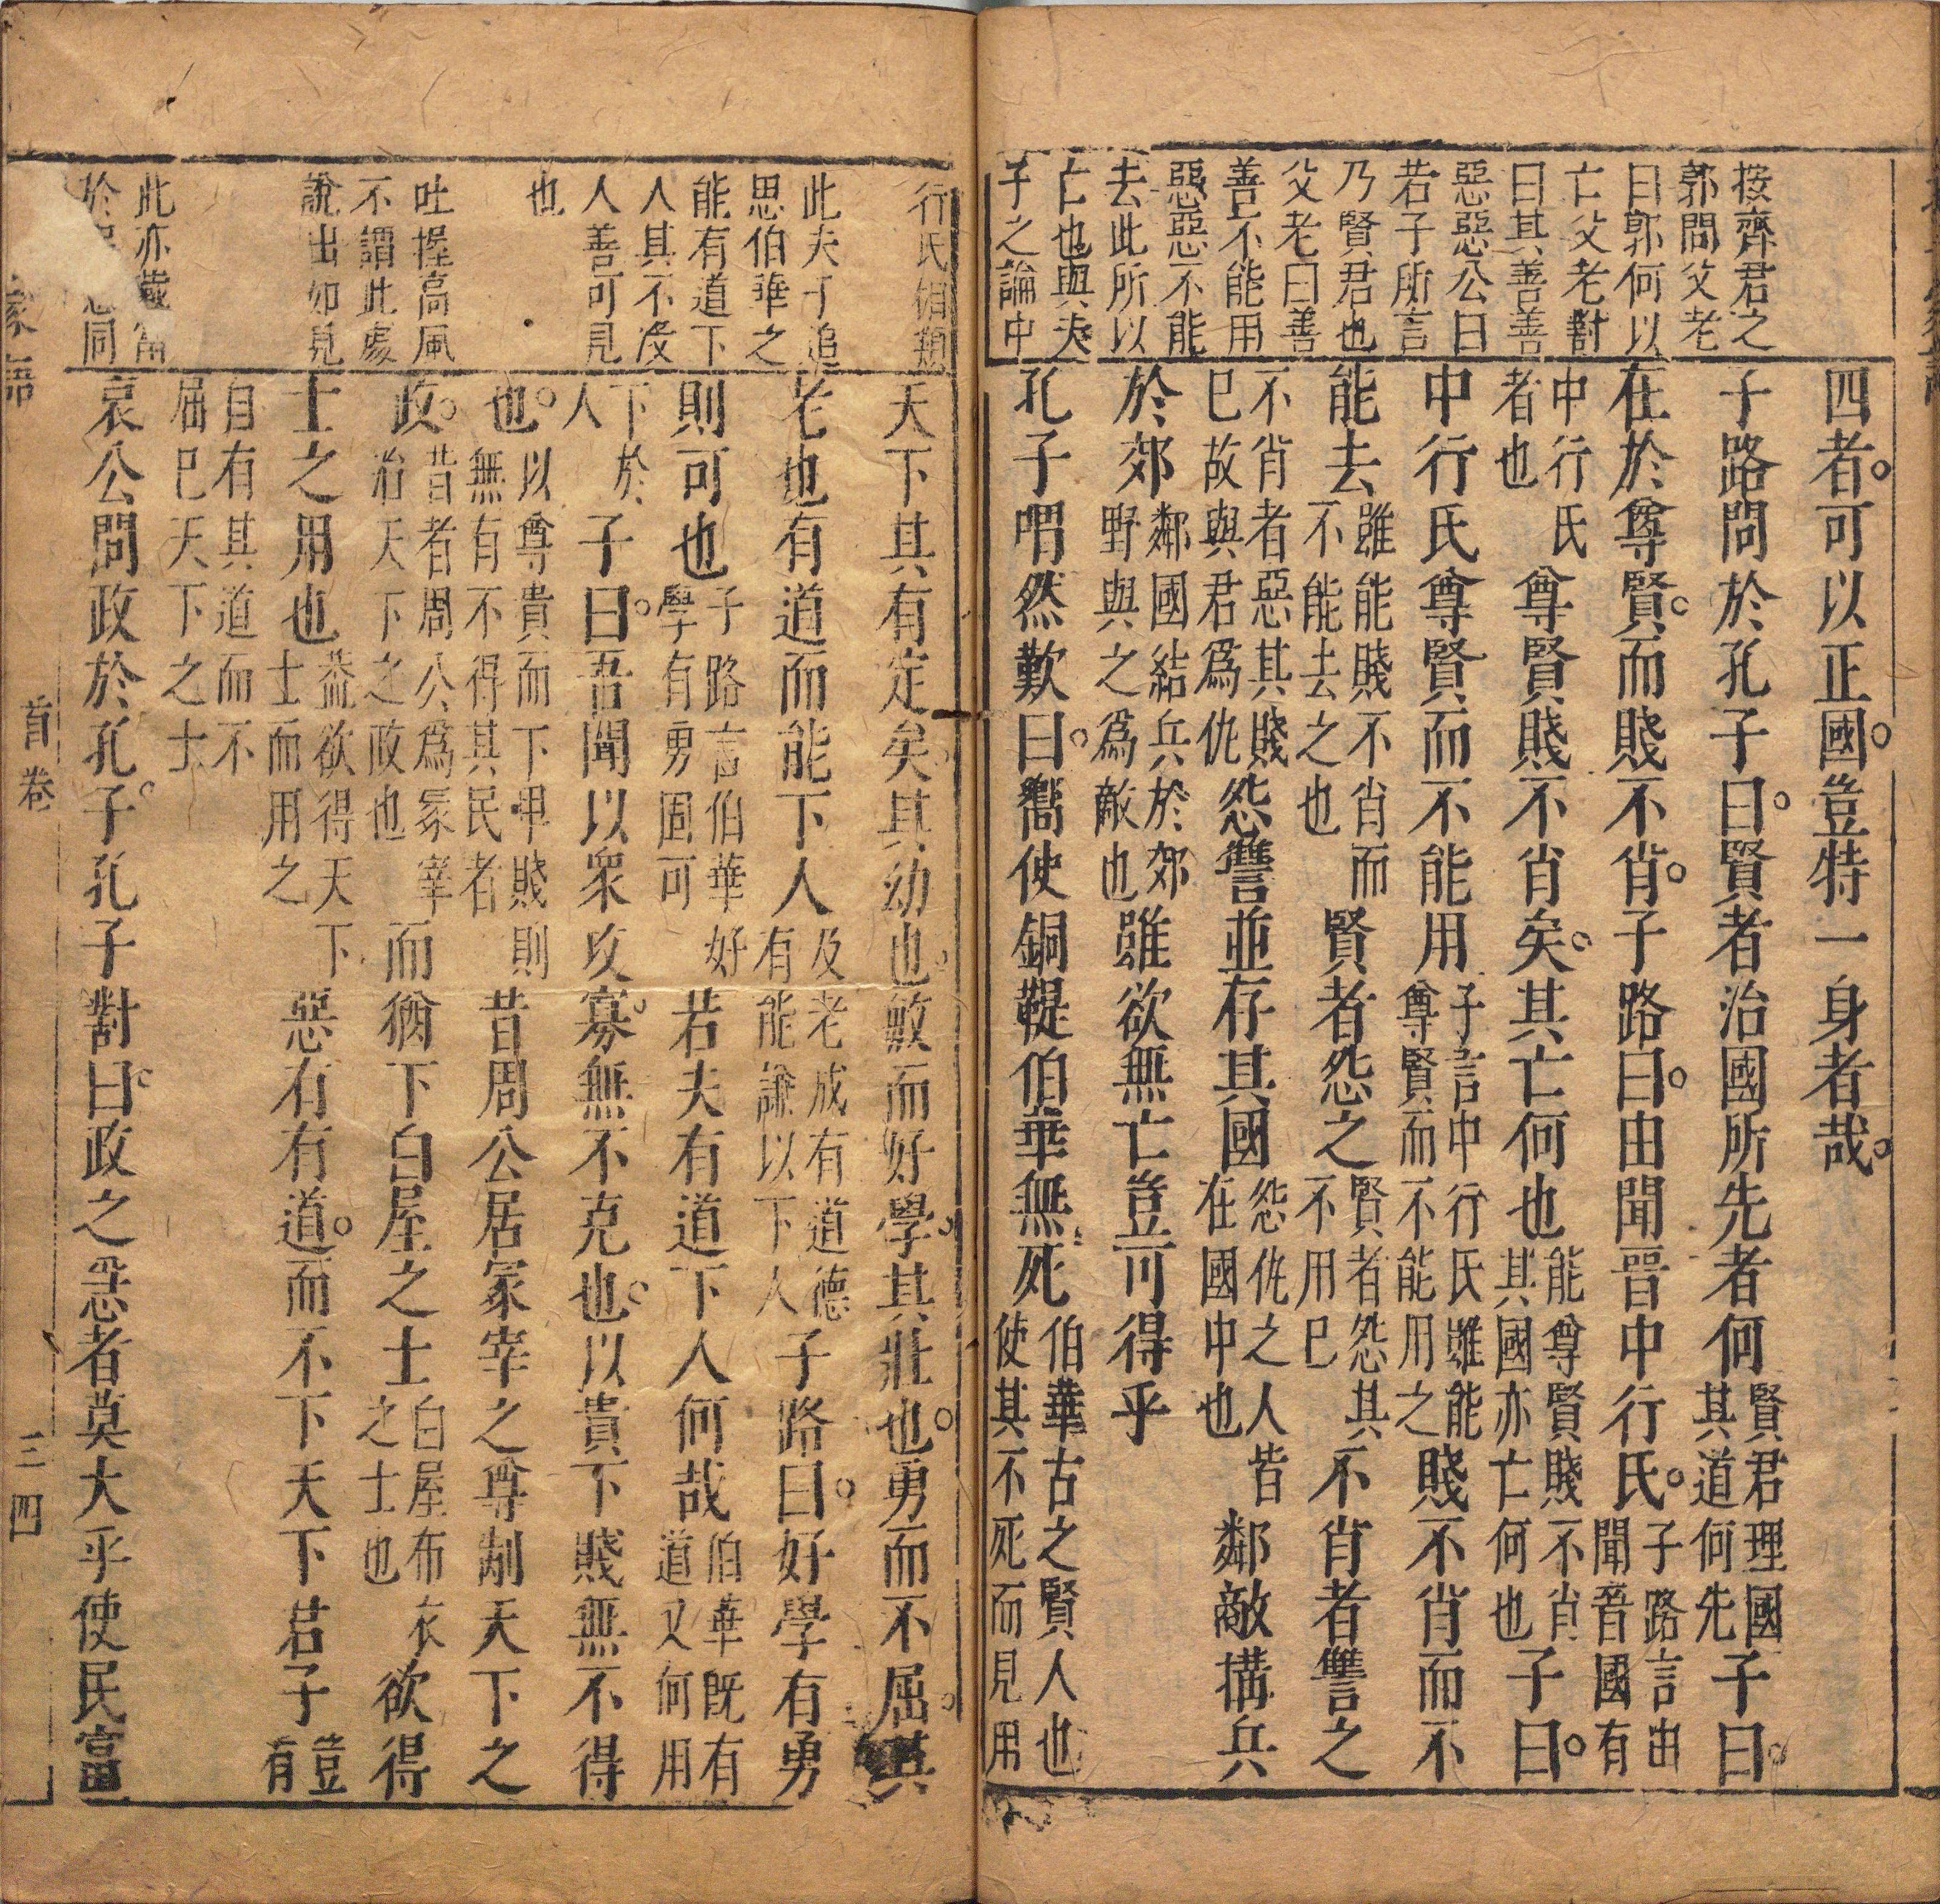 按齊君之
郭問父老
曰郭何以
亡父老對
曰其善善
惡惡公曰
若子所言
乃賢君也
父老曰善
善不能用
惡惡不能
去此所以
亡也與夫
子之論中
四者。可以正國。豈特一身者哉。
子路問於孔子曰。賢者治國所先者何賢君理國其道何先子曰。
在於尊賢。而賤不肖。子路曰。由聞晋中行氏。子路言由聞晋國有
中行氏者也尊賢賤不肖矣。其亡何也能尊賢賤不肖其國亦亡何也子曰。
中行氏尊賢而不能用子言中行氏雖能尊賢而不能用之賤不肖而不
能去雖能賤不肖而不能去之也賢者怨之賢者怨其不用已不肖者讐之
不肖者惡其賤已故與君爲仇怨讐並存其國怨仇之人皆在國中也鄰敵搆兵
於郊鄰國結兵於郊野與之爲敵也雖欲無亡豈可得乎
孔子喟然歎曰。嚮使銅鞮伯華無死伯華古之賢人也使其不死而見用
行氏相類
此夫子追
思伯華之
能有道下
人其不沒
人善可見
也
吐握高風
不謂此處
說出如見
此亦當
於同
天下其有定矣。其幼也。敏而好學。其壯也。勇而不屈。其
老也有道而能下人及老成有道德有能謙以下人子路曰。好學有勇
則可也子路言伯華好學有勇固可若夫有道下人何哉伯華既有道又何用
下於人子曰。吾聞以衆攻寡。無不克也。以貴下賤無不得
也。以尊貴而下卑賤則無有不得其民者昔周公居冢宰之尊制天下之
政。昔者周公爲冢宰治天下之政也而猶下白屋之士白屋布衣之士也欲得
士之用也葢欲得天下士而用之惡有有道。而不下天下君子豈有
自有其道而不屈已天下之士
哀公問政於孔子。孔子對曰。政之急者莫大乎使民富
家語
首卷
三四